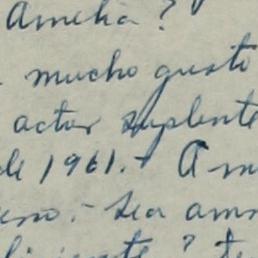 Amelia?
mucho gusto
actor suplente
de 1961.- A m
eno.- Sea amn
? te